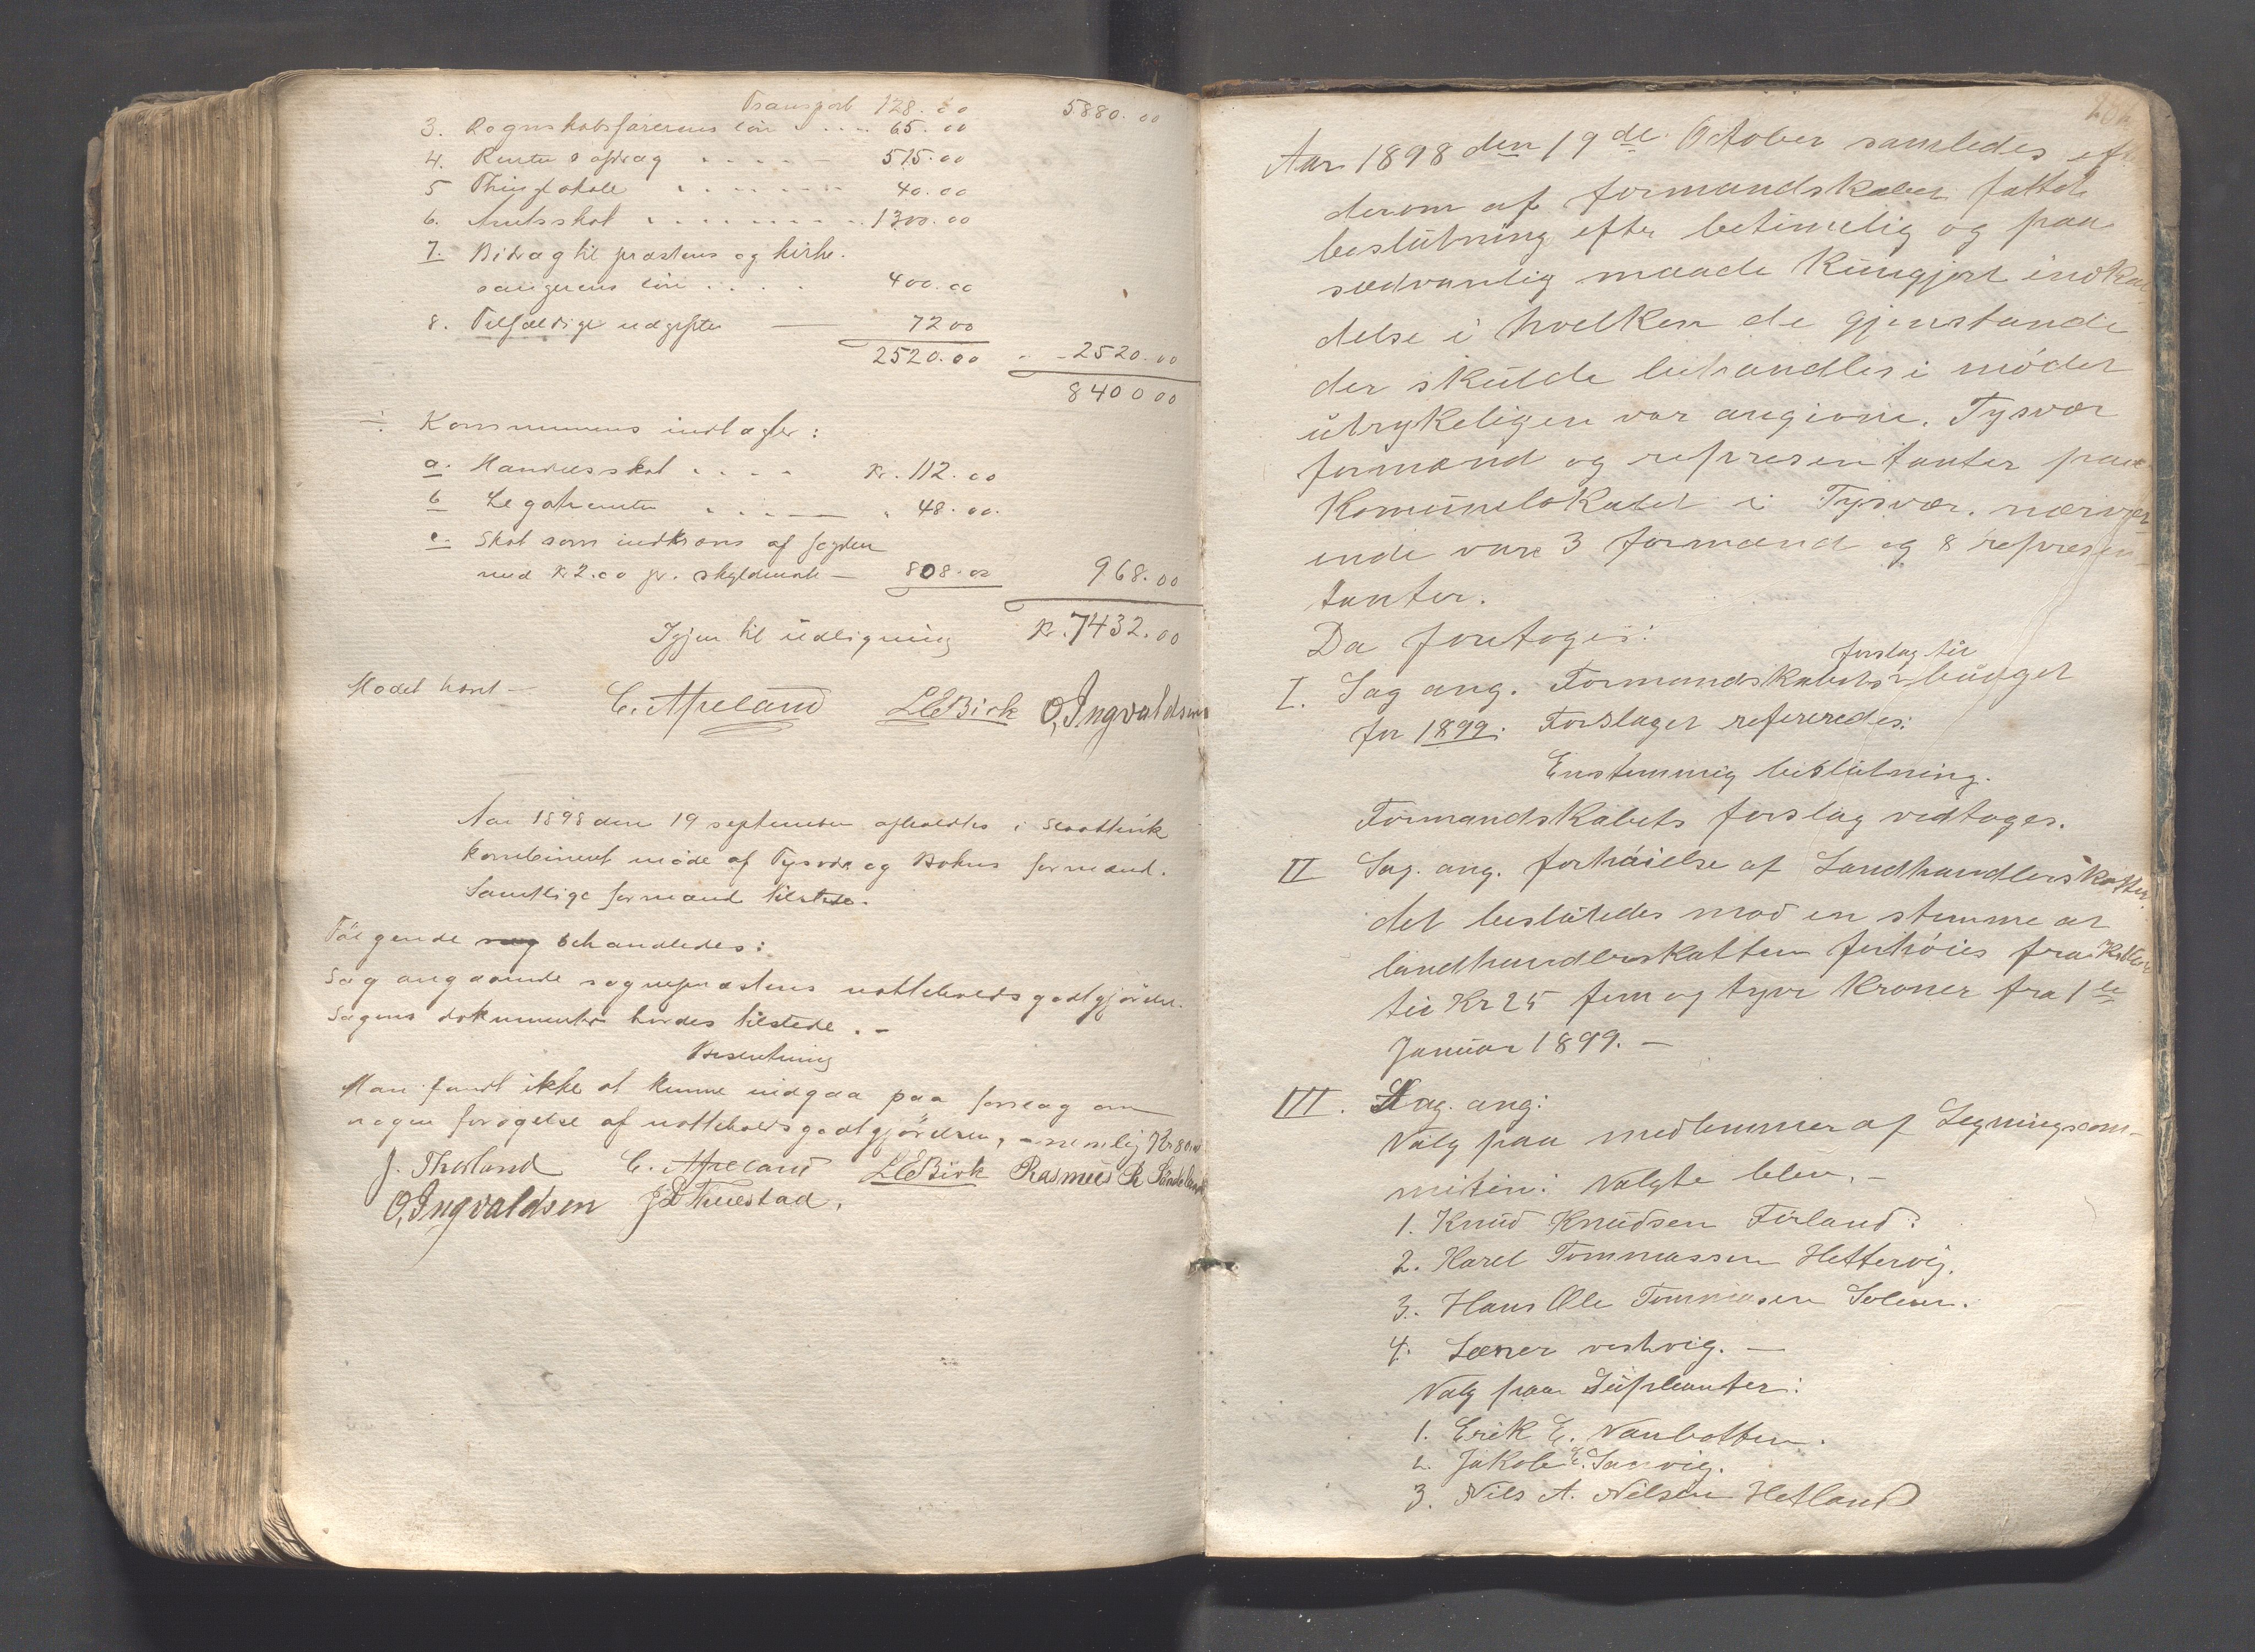 Transport 128.00 5880.00
3. Regnskabsførerens løn .... 65.00
4. Renter & afdrag . . . . - 515.00
5 Thinglokale . . . . . . 40.00
6. Amtsskat . . . . . . . . 1300.00
7. Bidrag til præstens og kirke-
sangerens løn . . . . 400.00
8. Tilfældige udgifter — 72 00
2520.00 - - 2520.00
8400 00
÷ Kommunens indtægter:
a. Handelsskat . . . . Kr. 112.00
b Legatrenter . . . — " 48.00.
c. Skat som indkræves af fogden
med Kr 2.00 pr. skyldmark — 808.00 968.00
Igjen til udligning Kr. 7432.00
Mødet hævet — C. Apeland LEBirk O, Ingvaldsen
Aar 1898 den 19 september afholdtes i Slottevik
kombineret møde af Tysvær og Bokns formænd.
Samtlige formænd tilstede.
Følgende sag behandledes:
Sag angaaende sogneprestens natteholdsgodtgjørelse.
Sagens dokumenter havdes tilstede. -
Beslutning
Man fandt ikke at kunne indgaa paa forslag om
nogen forøgelse af natteholdsgodtgjørelsen, - nemlig Kr. 80.00
J. Thorland C. Apeland LEBirk Rasmus R
O, Ingvaldsen
Aar 1898 den 19de October samledes efter
derom af formandskabet fattet
beslutning efter betimelig og paa
sædvanlig maade kungjort indkal-
delse i hvelken de gjenstande
der skulde behandles i mødet
utrykeligen var angivne. Tysvær
formænd og representanter paa
Komunelokalet i Tysvær. nærvær-
ende vare 3 formænd og 8 represen-
tanter.
Da foretoges:
forslag til
I. Sag ang. Formandskabets budget
for 1899. Forslaget refereredes:
Enstemmig beslutning.
Formandskabets forslag vedtoges.
II Sag. ang. forhøielse af Landhandlerskatten.
det beslutedes mod en stemme at
landhandlerskatten forhøies fra
til Kr 25 fem og tyve Kroner fra 1ste
Januar 1899. —
III. Sag. ang:
Valg paa medlemmer af Legningscom-
miteen: Valgte blev. -
1. Knud Knudsen Førland.
2. Karel Tommassen Hettervig.
3. Hans Ole Tommasen
4. vestvig. —
Valg paa Supleanter:
1. Erik E.
2. Jakob E.
3. Nils A. Nilsen Hetland